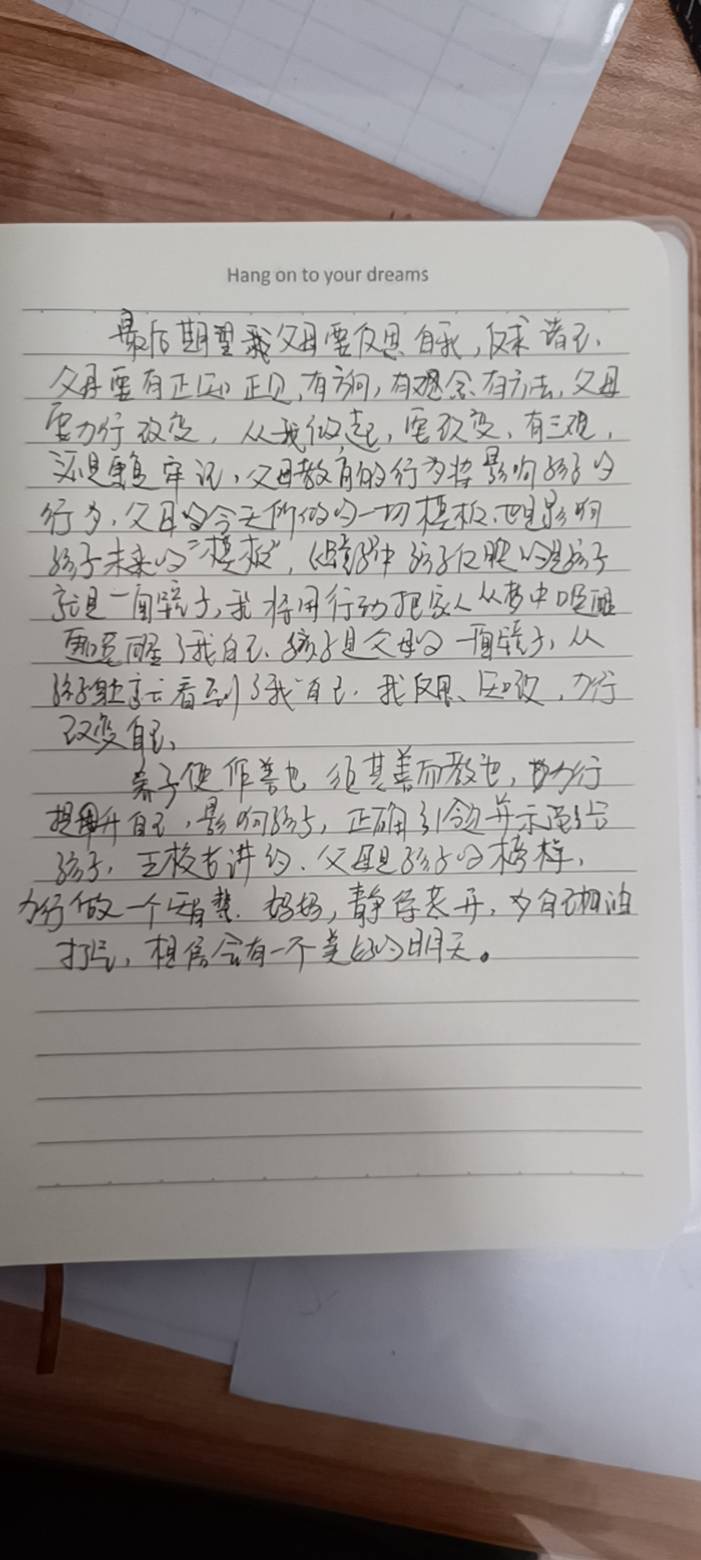 Hang on to your dreams
最后期望我父母要反思自我,反求诸己、
父母要有正知正见,有方向,有观念、有方法,父母
要力行改变,从我做起,要改变,有三观,
牢记,父母教育的行为将影响孩子的
行为,父母的今天所做的一切模板、也是影响
孩子未来的“模板”,孩子反映的是孩子
就是一面镜子,我将用行动把家人从梦中唤醒
更是唤醒了我自己、孩子是父母的一面镜子,从
孩子身上看到了我自己.我反思、知改,力行
改变自己、
养子使作善也 须其善而教也,力行
提升自己,影响孩子,正确引领并示范给
孩子,王校长讲的、父母是孩子的榜样,
力行做一个有梦、妈妈,静待花开,为自己加油
打气,相信会有一个美好的明天。